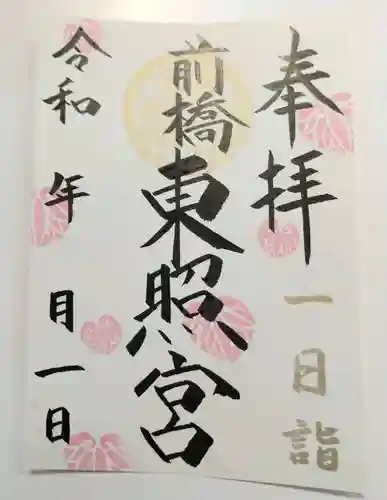 奉拝
一日詣
前橋
東照宮
令和 年 月一日